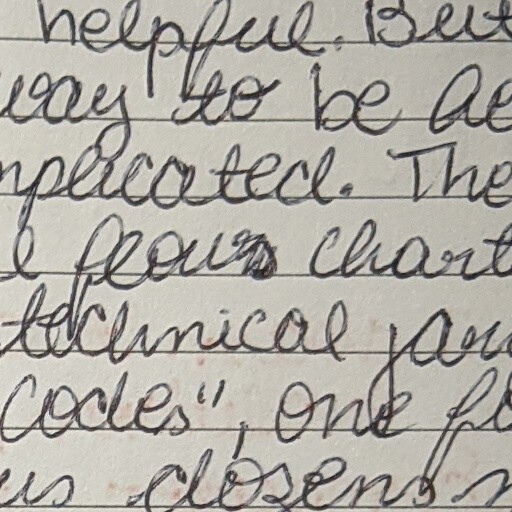 helpful. But
way to be he
mplicated. The
l flow chart
technical jar
codes", one fo
us dozens